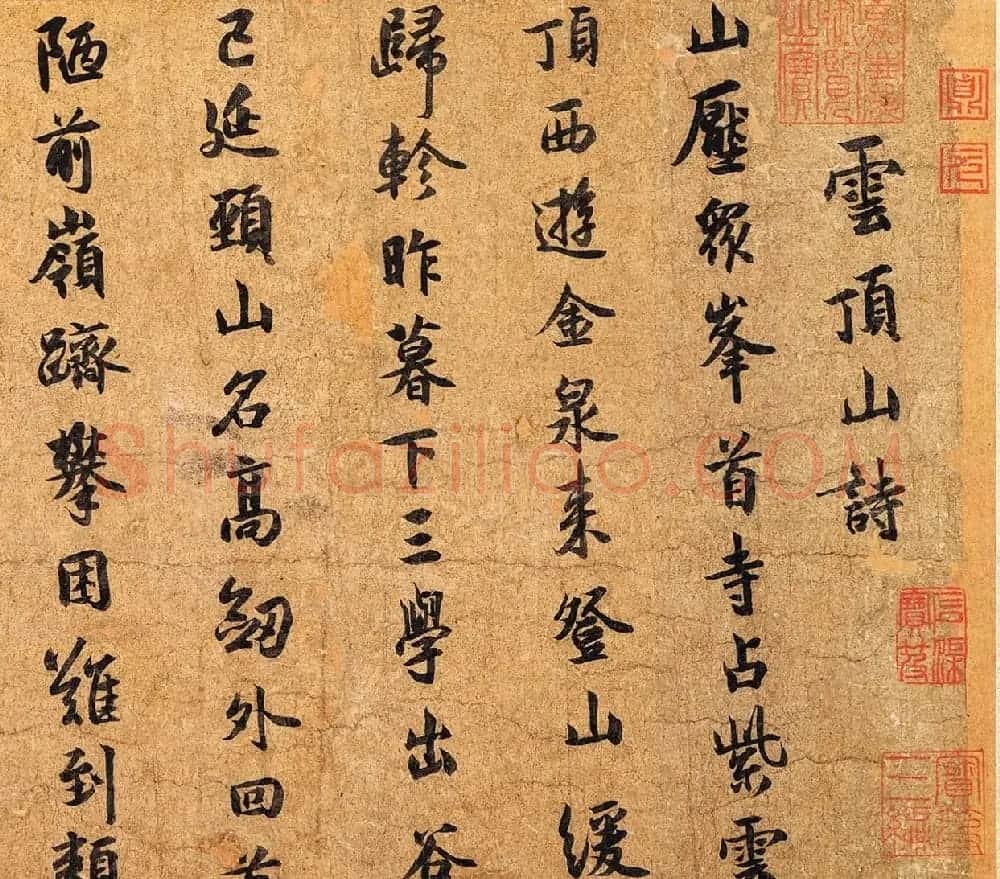 雲頂山詩
山壓衆峯首寺占紫雲
頂西遊金泉来登山緩
歸軫昨暮下三學出谷
已延頸山名高劔外回首
陋前嶺躋攀困難到類
shufaziliao.COM